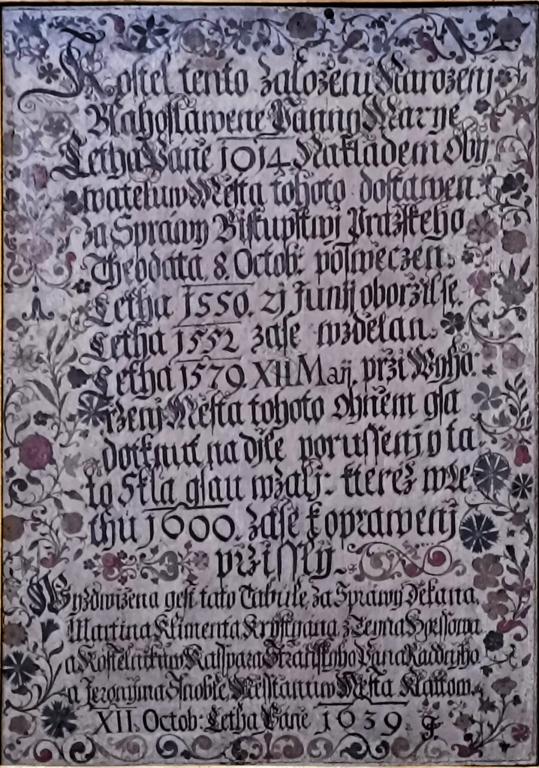 Kostel tento založenij Narozenij
Blahoslawene Panny Marye
Letha Panie 1014. Nakladem Oby
wateluw Města tohoto dostawen
za Sprawy Biskupstwj Pražskeho
Theodata 8. Octob: poswieczen.
Letha 1550. zj Junij obořil se.
Letha 1552 zase wzdělan.
Letha 1579. XII Maij. přzi Wyho
řzenj Města tohoto Ohniem gsa
dotknut na djle porussenj o ta
to Skla gsau wzalj. kterež w Le
thu 1600. zase k oprawenj
přzissly.
Wyzdwižena gest tato Tabule za Sprawy Děkana
Martina Klimenta
a Kostelnikuw Kasspara Pana Raddnjho
a Jeronyma Měsstianuw Města Klattow.
XII. Octob: Letha Panie 1639.